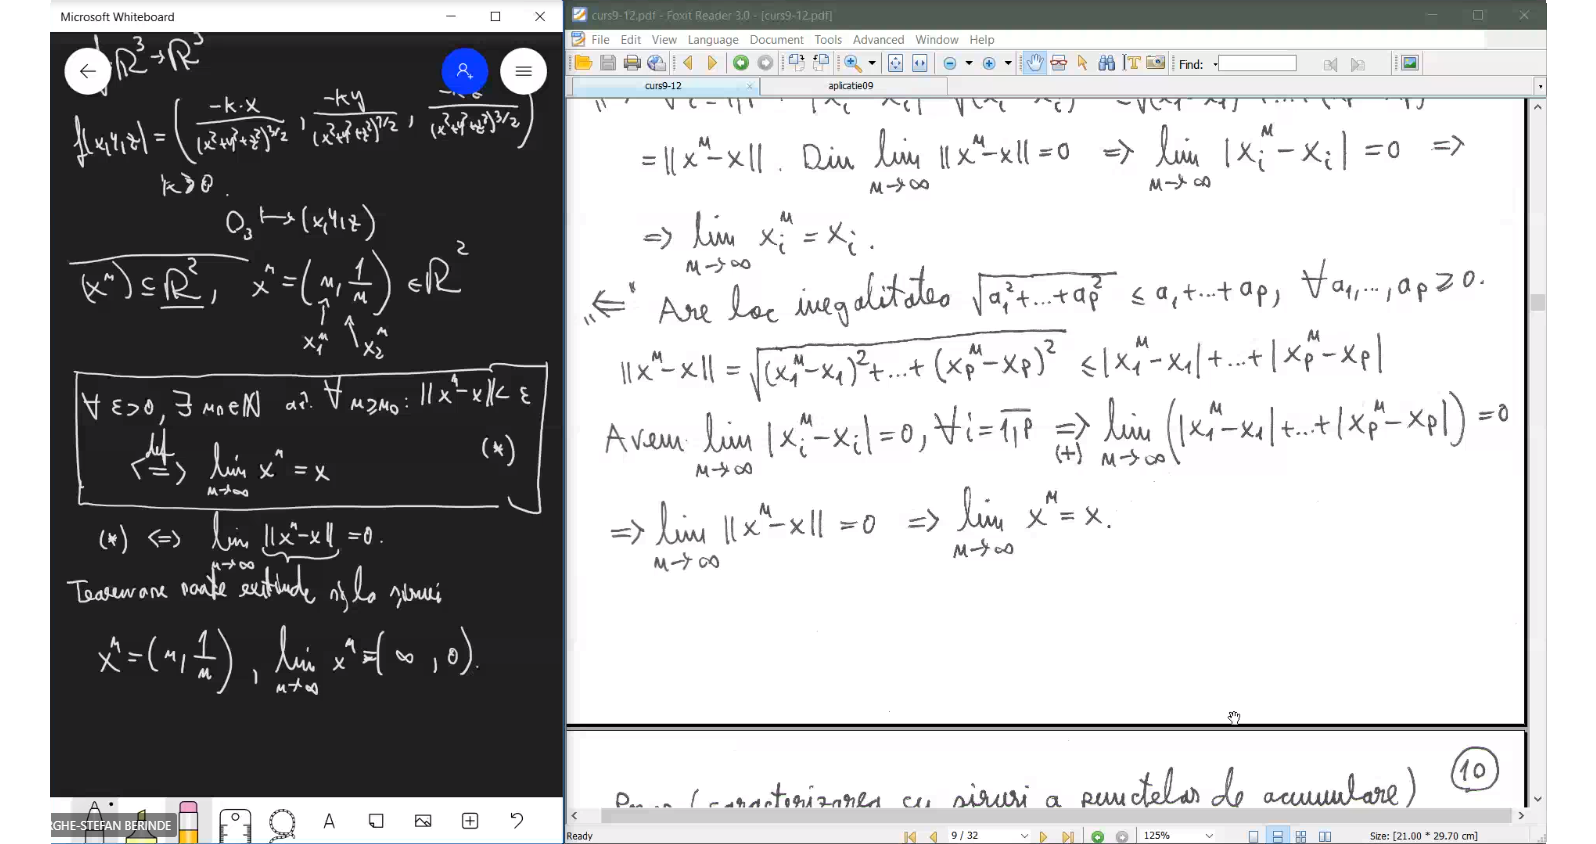 Microsoft Whiteboard
ℝ³→ℝ³
f(x,y,z) = ( -k·x / (x²+y²+z²)^{3/2} , -ky / (x²+y²+z²)^{3/2} , / (x²+y²+z²)^{3/2} )
k>0.
O₃ ↦ (x,y,z)
(xⁿ) ⊆ ℝ², xⁿ = (n, 1/n) ∈ ℝ²
x₁ⁿ x₂ⁿ
∀ ε>0, ∃ n₀∈ℕ a.î. ∀ n≥n₀: ||xⁿ-x|| < ε
<=def=> lim n→∞ xⁿ = x (*)
(*) <=> lim n→∞ ||xⁿ-x|| = 0.
xⁿ = (n, 1/n), lim n→∞ xⁿ = (∞, 0).
A
RGHE-STEFAN BERINDE
curs9-12.pdf - Foxit Reader 3.0 - [curs9-12.pdf]
File Edit View Language Document Tools Advanced Window Help
Find:
curs9-12 aplicatie09
= ||xⁿ-x||. Din lim n→∞ ||xⁿ-x|| = 0 => lim n→∞ |xᵢⁿ - xᵢ| = 0 =>
=> lim n→∞ xᵢⁿ = xᵢ.
„<=" Are loc inegalitatea √(a₁²+...+aₚ²) ≤ a₁+...+aₚ, ∀ a₁,..., aₚ ≥ 0.
||xⁿ-x|| = √((x₁ⁿ-x₁)²+...+(xₚⁿ-xₚ)²) ≤ |x₁ⁿ-x₁|+...+|xₚⁿ-xₚ|
Avem lim n→∞ |xᵢⁿ-xᵢ| = 0, ∀ i = 1,p => (+) lim n→∞ (|x₁ⁿ-x₁|+...+|xₚⁿ-xₚ|) = 0
=> lim n→∞ ||xⁿ-x|| = 0 => lim n→∞ xⁿ = x.
10
(caracterizarea cu siruri a punctelor de acumulare)
Ready 9 / 32 125% Size: [21.00 * 29.70 cm]